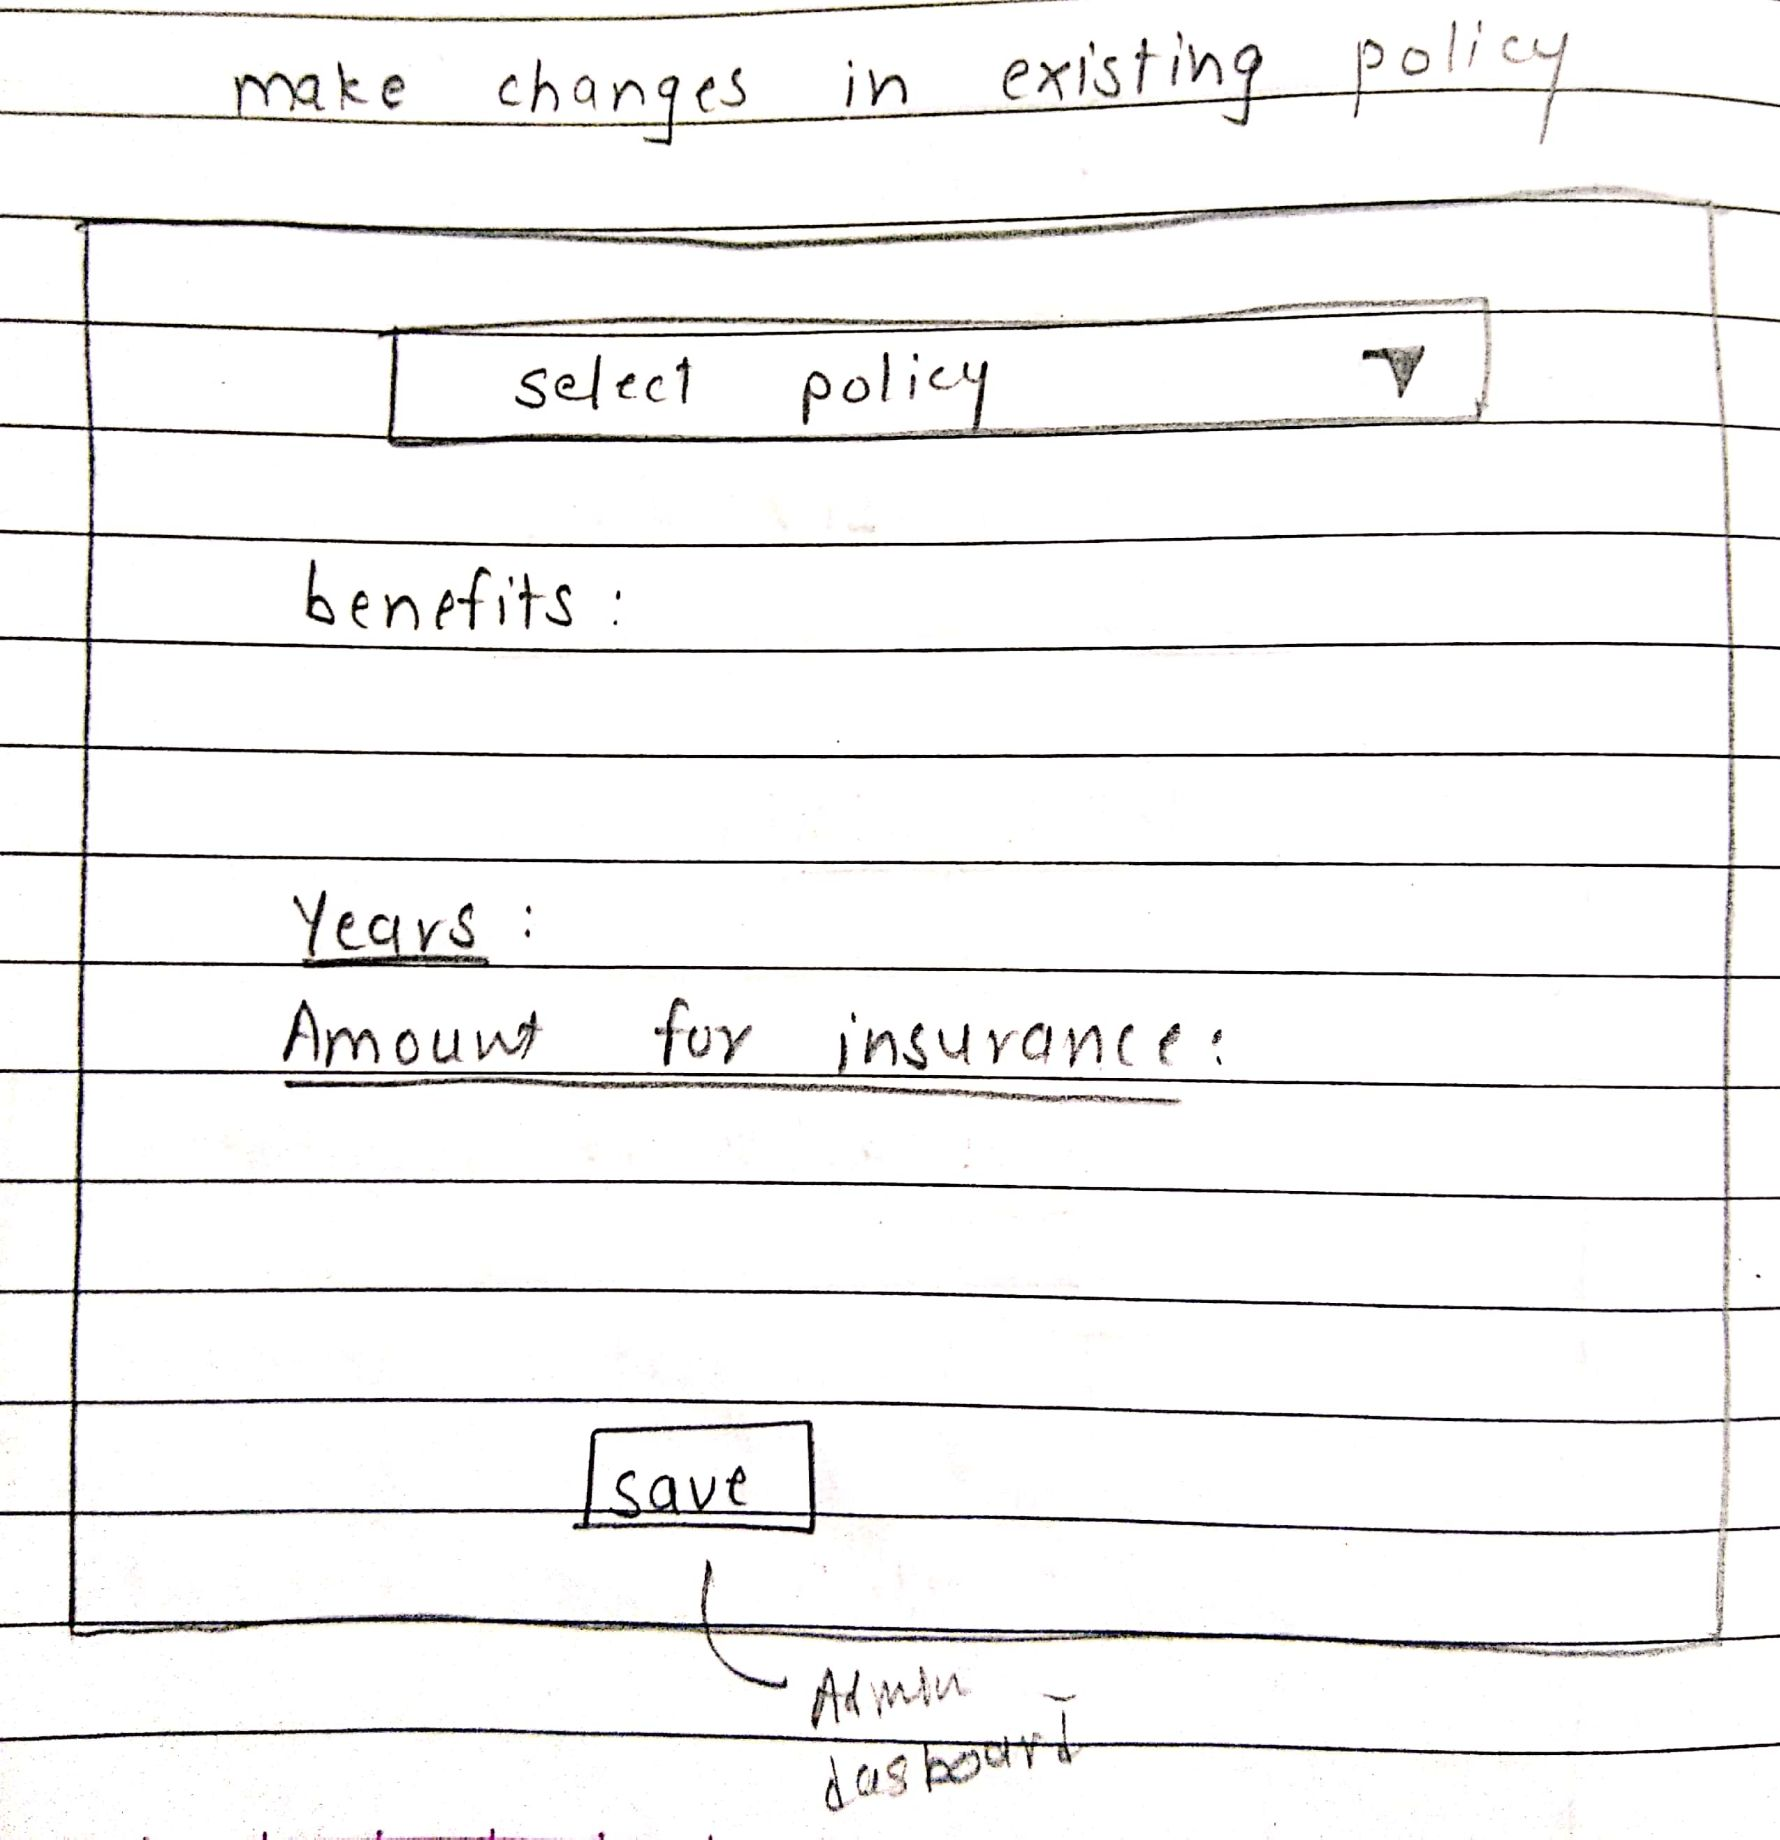 make changes in existing policy
select policy
benefits :
Years :
Amount for insurance :
save
Admin
dasboard